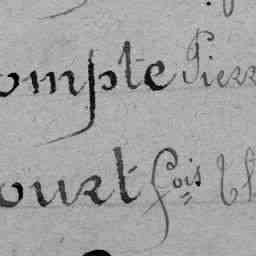 ompte Pierr
ourt fois